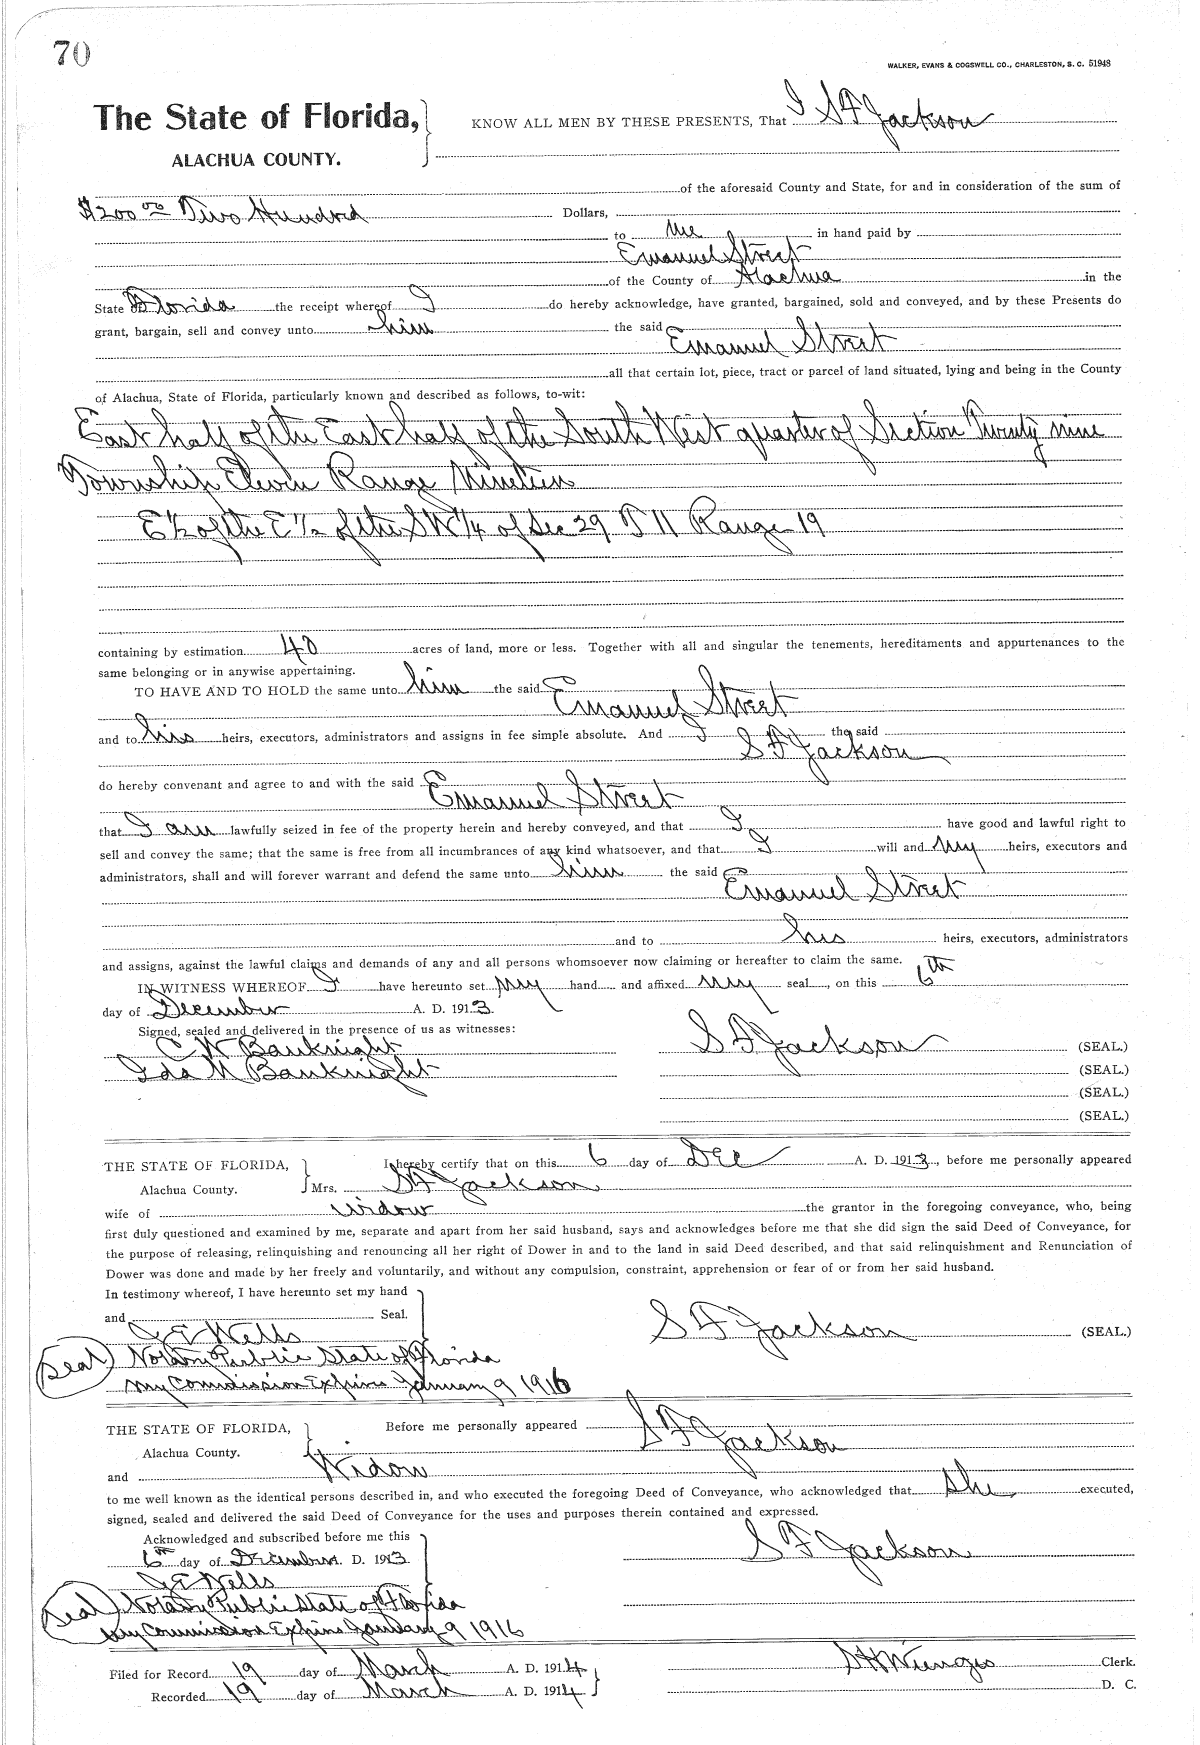 70
WALKER, EVANS & COGSWELL CO., CHARLESTON, S. C. 51948
The State of Florida,
ALACHUA COUNTY.
KNOW ALL MEN BY THESE PRESENTS, That I S F Jackson
of the aforesaid County and State, for and in consideration of the sum of
$200 00 Two Hundred Dollars,
to me in hand paid by
Emanuel Street
of the County of Alachua in the
State Florida the receipt whereof I do hereby acknowledge, have granted, bargained, sold and conveyed, and by these Presents do
grant, bargain, sell and convey unto him the said Emanuel Street
all that certain lot, piece, tract or parcel of land situated, lying and being in the County
of Alachua, State of Florida, particularly known and described as follows, to-wit:
East half of the East half of the South West quarter of Section Twenty nine
Township Eleven Range Nineteen
E 1/2 of the E 1/2 of the SW 1/4 of Sec 29 T 11 Range 19
containing by estimation 40 acres of land, more or less. Together with all and singular the tenements, hereditaments and appurtenances to the
same belonging or in anywise appertaining.
TO HAVE AND TO HOLD the same unto him the said Emanuel Street
and to his heirs, executors, administrators and assigns in fee simple absolute. And I the said
S F Jackson
do hereby convenant and agree to and with the said Emanuel Street
that I am lawfully seized in fee of the property herein and hereby conveyed, and that I have good and lawful right to
sell and convey the same; that the same is free from all incumbrances of any kind whatsoever, and that I will and my heirs, executors and
administrators, shall and will forever warrant and defend the same unto him the said Emanuel Street
and to his heirs, executors, administrators
and assigns, against the lawful claims and demands of any and all persons whomsoever now claiming or hereafter to claim the same.
IN WITNESS WHEREOF I have hereunto set my hand and affixed my seal, on this 6th
day of December A. D. 1913.
Signed, sealed and delivered in the presence of us as witnesses:
C W Bauknight
Ida M Bauknight
S F Jackson (SEAL.)
(SEAL.)
(SEAL.)
(SEAL.)
THE STATE OF FLORIDA,
Alachua County.
I hereby certify that on this 6 day of Dec A. D. 1913, before me personally appeared
Mrs. S F Jackson
wife of widow the grantor in the foregoing conveyance, who, being
first duly questioned and examined by me, separate and apart from her said husband, says and acknowledges before me that she did sign the said Deed of Conveyance, for
the purpose of releasing, relinquishing and renouncing all her right of Dower in and to the land in said Deed described, and that said relinquishment and Renunciation of
Dower was done and made by her freely and voluntarily, and without any compulsion, constraint, apprehension or fear of or from her said husband.
In testimony whereof, I have hereunto set my hand
and Seal.
Wells
S F Jackson (SEAL.)
Seal Notary Public State of Florida
My Commission Expires January 9 1916
THE STATE OF FLORIDA,
Alachua County.
Before me personally appeared S F Jackson
and Widow
to me well known as the identical persons described in, and who executed the foregoing Deed of Conveyance, who acknowledged that she executed,
signed, sealed and delivered the said Deed of Conveyance for the uses and purposes therein contained and expressed.
Acknowledged and subscribed before me this
6th day of December A. D. 1913
S F Jackson
Wells
Seal Notary Public State of Florida
My Commission Expires January 9 1916
Filed for Record 19 day of March A. D. 1914
Clerk.
Recorded 19 day of March A. D. 1914
D. C.